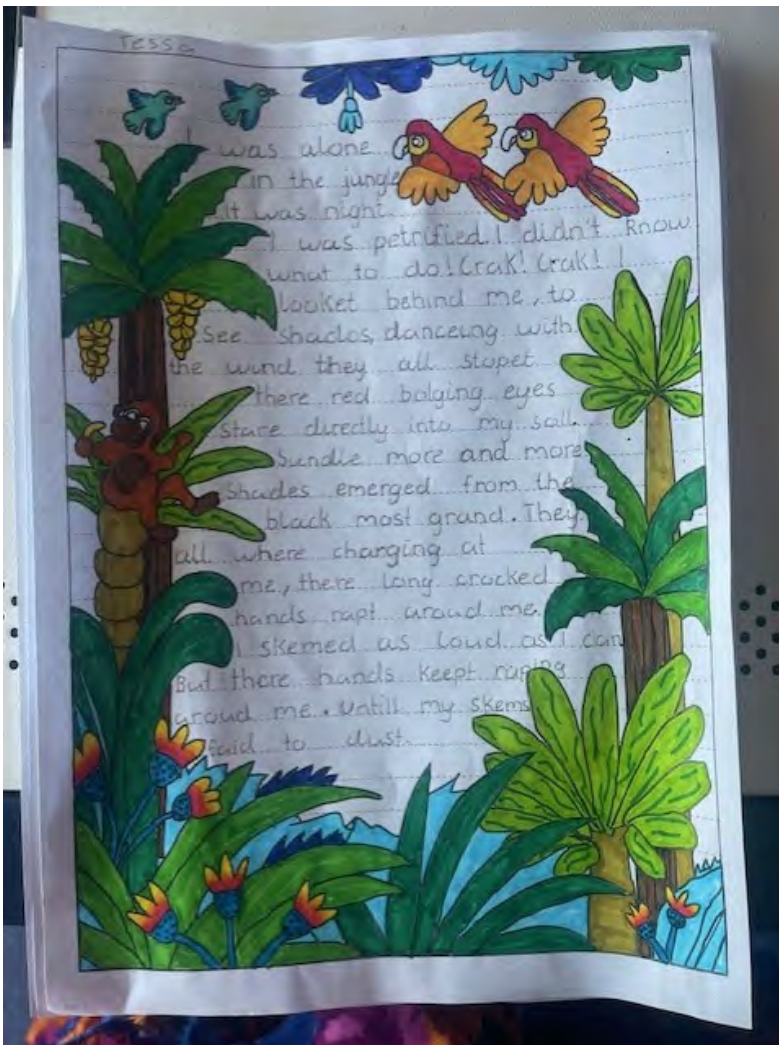 Tessa
I was alone
in the jungle
It was night
I was petrified. I didn't know
what to do! Crak! Crak! I
looket behind me, to
see shados, danceing with
the wind they all stopet
there red bolging eyes
stare directly into my soll.
Sundle more and more
shades emerged from the
black most grand. They
all where charging at
me, there long cracked
hands rapt around me.
I skemed as loud as I can
But there hands keept raping
aroud me. Untill my skems
faid to dust.